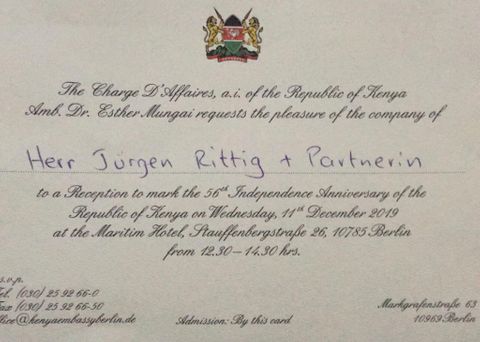 The Charge D'Affaires, a.i. of the Republic of Kenya
Amb. Dr. Esther Mungai requests the pleasure of the company of
Herr Jürgen Rittig + Partnerin
to a Reception to mark the 56th Independence Anniversary of the
Republic of Kenya on Wednesday, 11th December 2019
at the Maritim Hotel, Stauffenbergstraße 26, 10785 Berlin
from 12.30 – 14.30 hrs.
s.v.p.
Tel. (030) 25 92 66-0
Fax (030) 25 92 66-50
ffice@kenyaembassyberlin.de
Admission: By this card
Markgrafenstraße 63
10969 Berlin